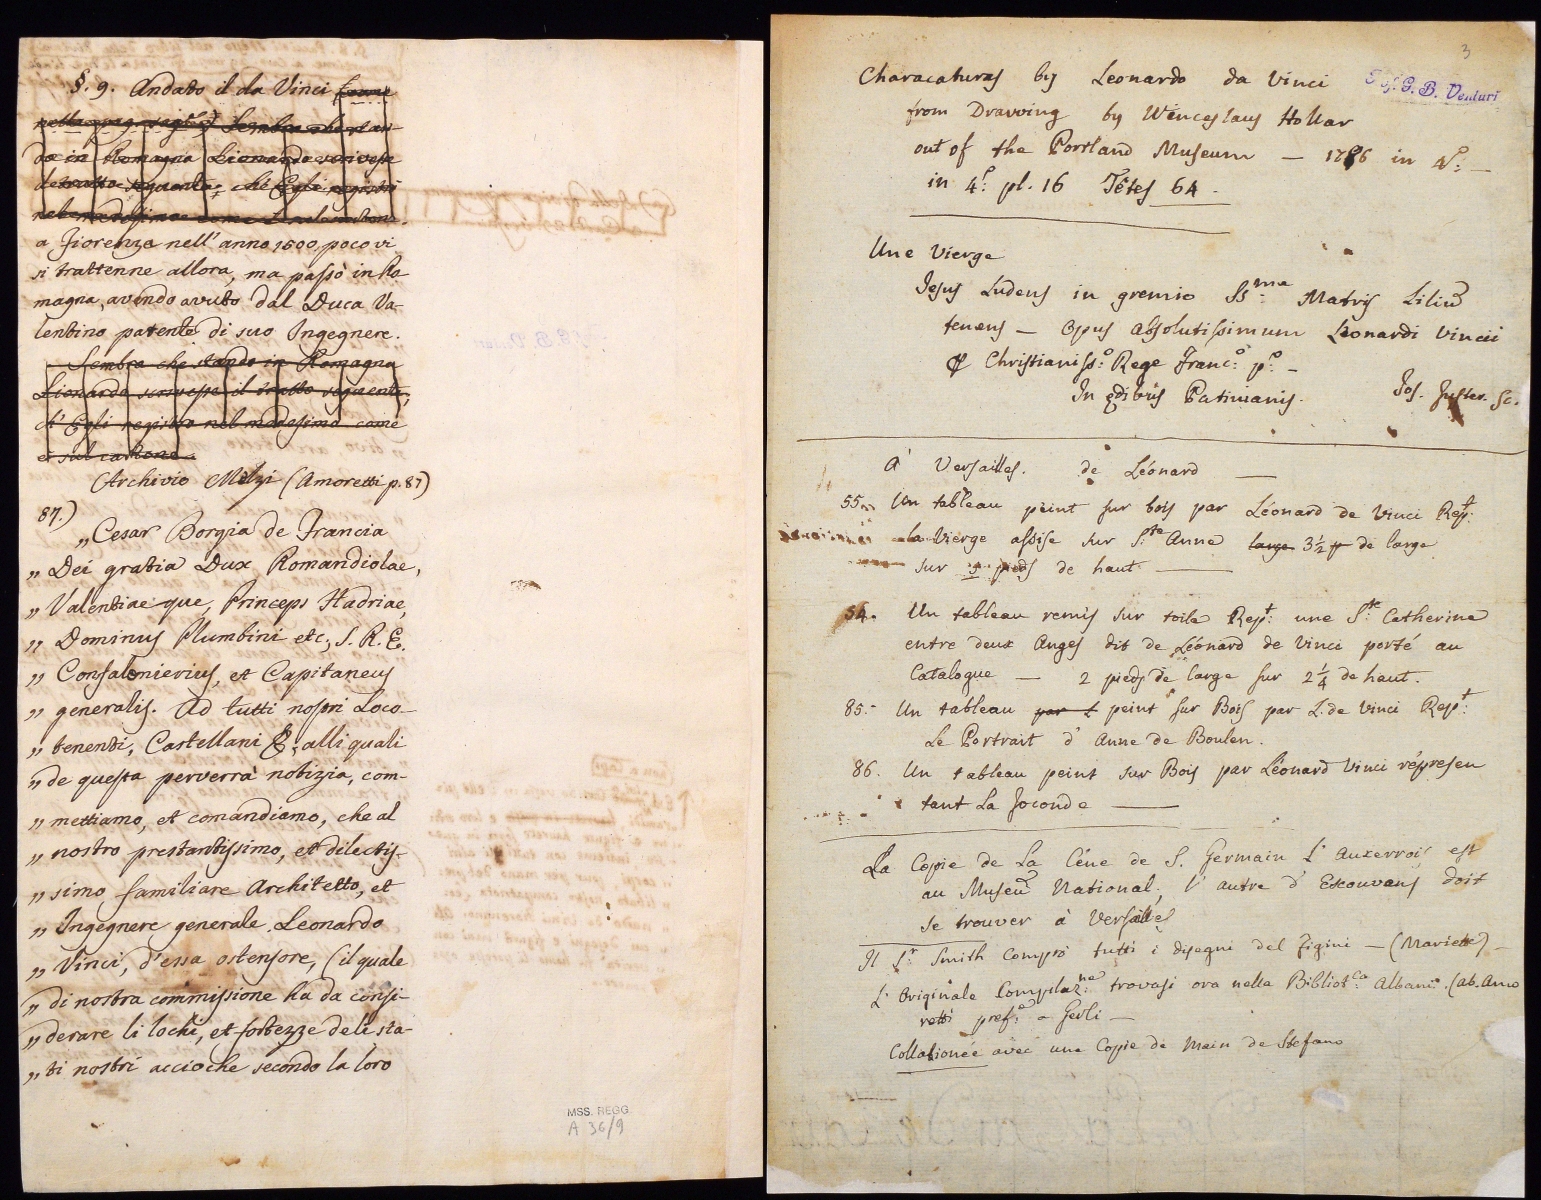 §. 9. Andato il da Vinci (come
Sembra che stan-
do in Romagna Lionardo scrivesse
il tratto seguente, ché Egli registrò
nel medesimo come
a Fiorenza nell' anno 1500, poco vi
si trattenne allora, ma passò in Ro-
magna, avendo avuto dal Duca Va-
lentino patente di suo Ingegnere.
Sembra che stando in Romagna
Lionardo scrivesse il tratto seguente,
ch' Egli registrò nel medesimo come
e sul cartone
Archivio Melzi (Amoretti p. 87)
87.)
„ Cesar Borgia de Francia
„ Dei gratia Dux Romandiolae,
„ Valentiae que, Princeps Hadriae,
„ Dominus Plumbini etc, S. R. E.
„ Confalonierius, et Capitaneus
„ generalis. Ad tutti nostri Loco-
„ tenenti, Castellani &, alli quali
„ de questa perverrà notizia, com-
„ mettiamo, et comandiamo, che al
„ nostro prestantissimo, et dilectis-
„ simo familiare Architetto, et
„ Ingegnere generale Leonardo
„ Vinci, d'essa ostensore, (il quale
„ di nostra commissione ha da consi-
„ derare li lochi, et fortezze deli sta-
„ ti nostri acciochè secondo la loro
MSS. REGG.
A 36/9
3
G. B. Venturi
Characaturas by Leonardo da Vinci
from Drawing by Winceslaus Hollar
out of the Portland Museum — 1786 in 4º: —
in 4º: pl. 16 Têtes 64.
Une Vierge
Jesus Ludens in gremio SS:ma Matris Lilium
tenens — Opus absolutissimum Leonardi Vincii
Christianiss:º Rege Franc:º pº —
In ędibus Patinianis. Jos. Juster. Sc.
A Versailles. de Léonard —
55. Un tableau peint sur bois par Léonard de Vinci Repᵗ:
la Vierge assise sur S:te Anne large 3½ p de large
sur pieds de haut —
54. Un tableau remis sur toile Repᵗ: une S:te Catherine
entre deux Anges dit de Léonard de Vinci porté au
Catalogue — 2 pieds de large sur 2¼ de haut.
85.- Un tableau par L peint sur Bois par L. de Vinci Repᵗ:
Le Portrait d' Anne de Boulen.
86. Un tableau peint sur Bois par Léonard Vinci représen
tant La Joconde —
La Copie de La Céne de S. Germain L' Auxerrois est
au Museum National, l' autre d' Escouvans doit
se trouver à Versailles
Il S:r Smith comprò tutti i disegni del Figini — (Mariette) —
L' Originale Compilaz:ne trovasi ora nella Bibliot:ca Albani. (ab. Amo
retti pref:e a Gerli —
Collationée avec une Copie de Main de Stefano